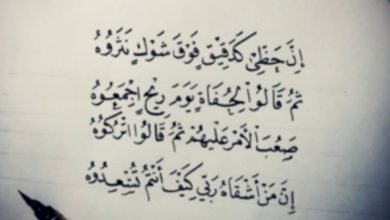 إِنَّ حَظِّيْ كَدَقِيْقٍ فَوْقَ شَوْكٍ نَثَرُوْهُ
ثُمَّ قَالُوْا لِحُفَاةٍ يَوْمَ رِيْحٍ اِجْمَعُوْهُ
صَعِبَ الأَمْرُ عَلَيْهِمْ ثُمَّ قَالُوْا اتْرُكُوْهُ
إِنَّ مَنْ أَشْقَاهُ رَبِّي كَيْفَ أَنْتُمْ تُسْعِدُوْهُ